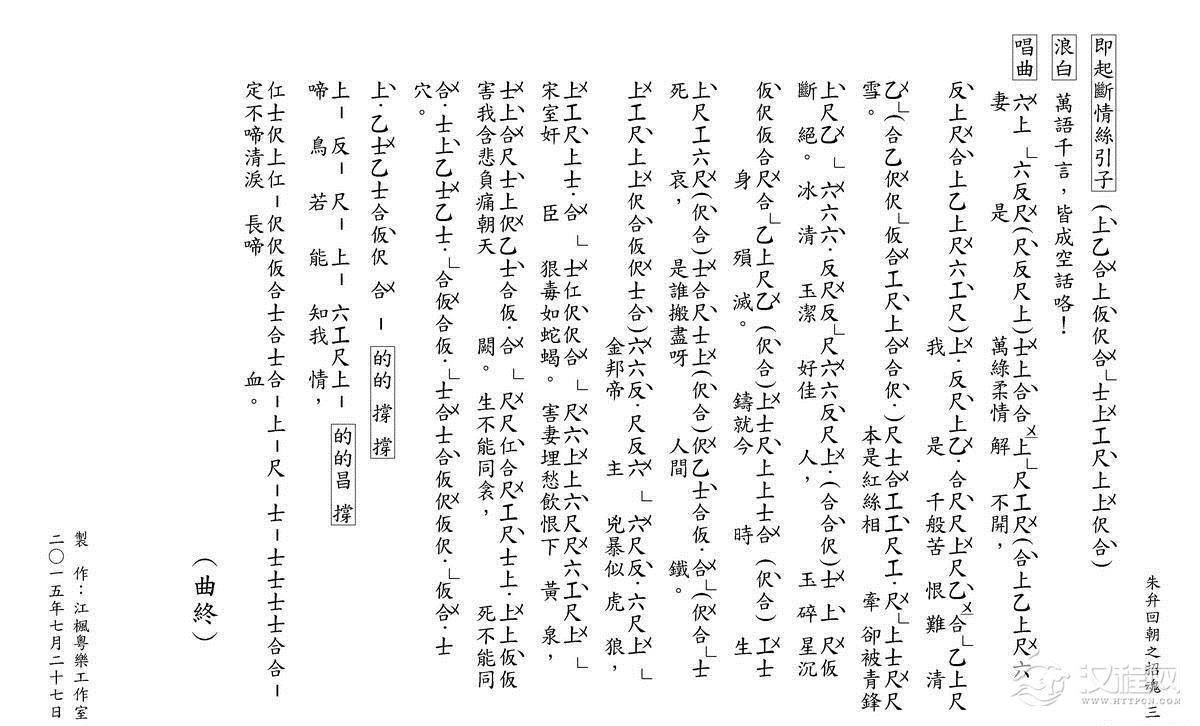 朱弁回朝之招魂 三
即起斷情絲引子 (上乙合上仮伬合└士上工尺上上伬合)
浪白 萬語千言，皆成空話咯！
唱曲 六上└六反尺(尺反尺上)士上合合上└尺工尺(合上乙上尺六
妻 是 萬綠柔情 解 不開，
反上尺合上乙上尺六工尺)上·反尺上乙·合尺尺上尺乙合└乙上尺
我 是 千般苦 恨 難 清
乙└(合乙伬伬└仮合工尺上合合伬·)尺士合工工尺工·尺└上士尺尺
雪。 本是紅絲相 牽 卻被青鋒
上尺乙└六六六·反尺反└尺六六反尺上·(合合伬)士上尺仮
斷 絕。 冰 清 玉潔 好佳 人， 玉 碎 星沉
仮伬仮合尺合└乙上尺乙(伬合)上士尺上上士合(伬合)工士
身 殞 滅。 鑄就今 時 生
上尺工六尺(伬合)士合尺士上(伬合)伬乙士合仮·合└(伬合└士
死 哀， 是誰搬盡呀 人間 鐵。
上工尺上上伬合仮伬士合)六六反·尺反六└六尺反·六尺上└
金邦帝 主 兇暴似 虎 狼，
上工尺上士·合└士仜伬伬合└尺六上上六尺尺六工尺上└
宋室奸 臣 狠毒如蛇蝎。 害妻埋愁飲恨下 黃 泉，
士上合尺士上伬乙士合仮·合└尺尺仜合尺工尺士上·上上仮伬
害我含悲負痛朝天 闕。 生不能同衾， 死不能同
合·士上乙士乙士·└合仮合仮·└士合士合仮伬仮伬·└仮合·士
穴。
上·乙士乙士合仮伬 合 － 的的 撐 撐
上－反－尺－上－六工尺上－ 的的昌 撐
啼 鳥 若 能 知我 情，
仜士伬上仜－伬伬仮合士合士合－上－尺－士－士士士士合合－
定不啼清淚 長啼 血。
(曲終)
製 作：江楓粵樂工作室
二〇一五年七月二十七日
汉程网
WWW.HTTPCN.COM